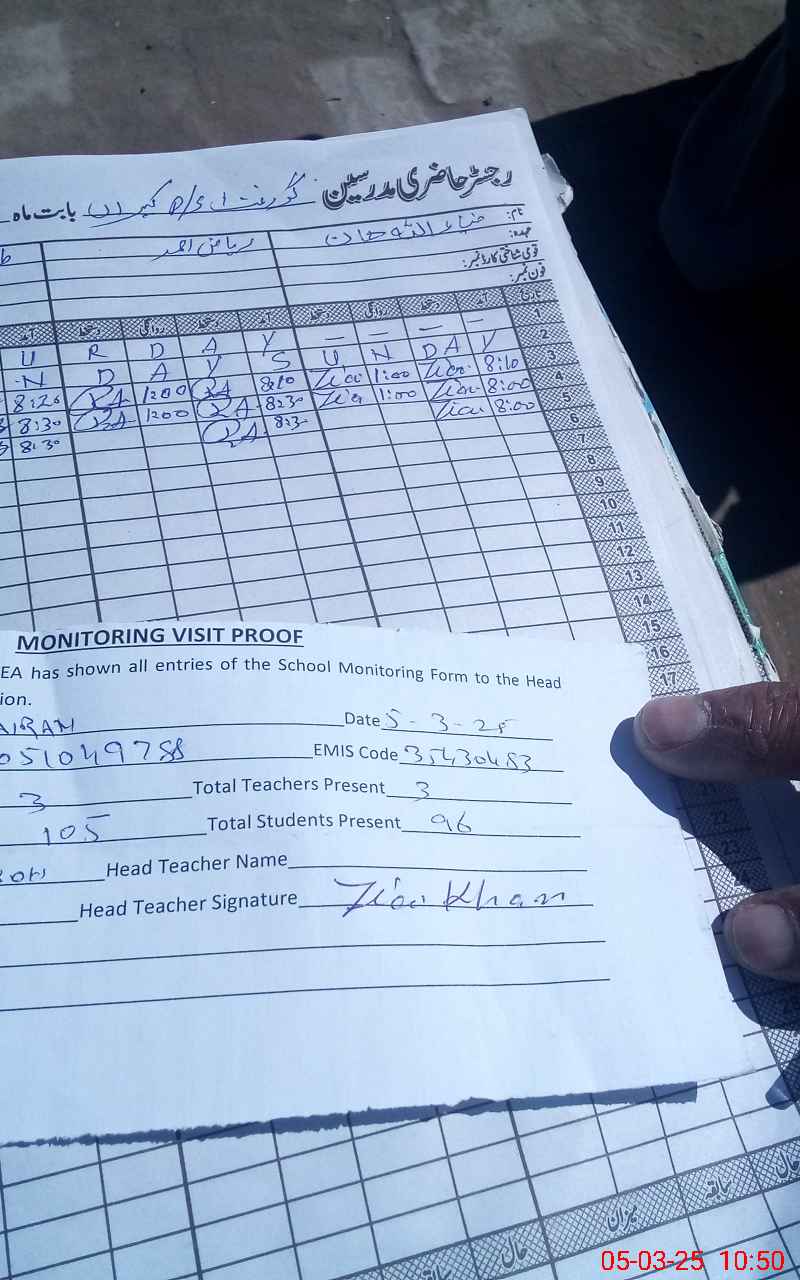 رجسٹر حاضری مدرسین گورنمنٹ بابت ماہ
نام: ضیاء اللہ خان ریاض احمد
عہدہ:
قومی شناختی کارڈ نمبر:
فون نمبر:
تاریخ آمد دستخط روانگی دستخط آمد دستخط روانگی دستخط آمد
1 — — — —
2 Y A D N U S Y A D R U
3 8:10 Ziau 1:00 Ziau 8:10 RA 1200 RA 8:20
4 8:00 Ziau 1:00 Ziau 8:30 RA 1200 RA 8:30
5 8:00 Ziau 8:3- RA 8:30
6
7
8
9
10
11
12
13
14
15
16
17
MONITORING VISIT PROOF
EA has shown all entries of the School Monitoring Form to the Head
ion.
AIRAN Date 5-3-25
051049788 EMIS Code 35430483
3 Total Teachers Present 3
105 Total Students Present 96
Head Teacher Name
Head Teacher Signature Ziau Khan
21
22
23
میزان سابقہ حال
حال
05-03-25 10:50